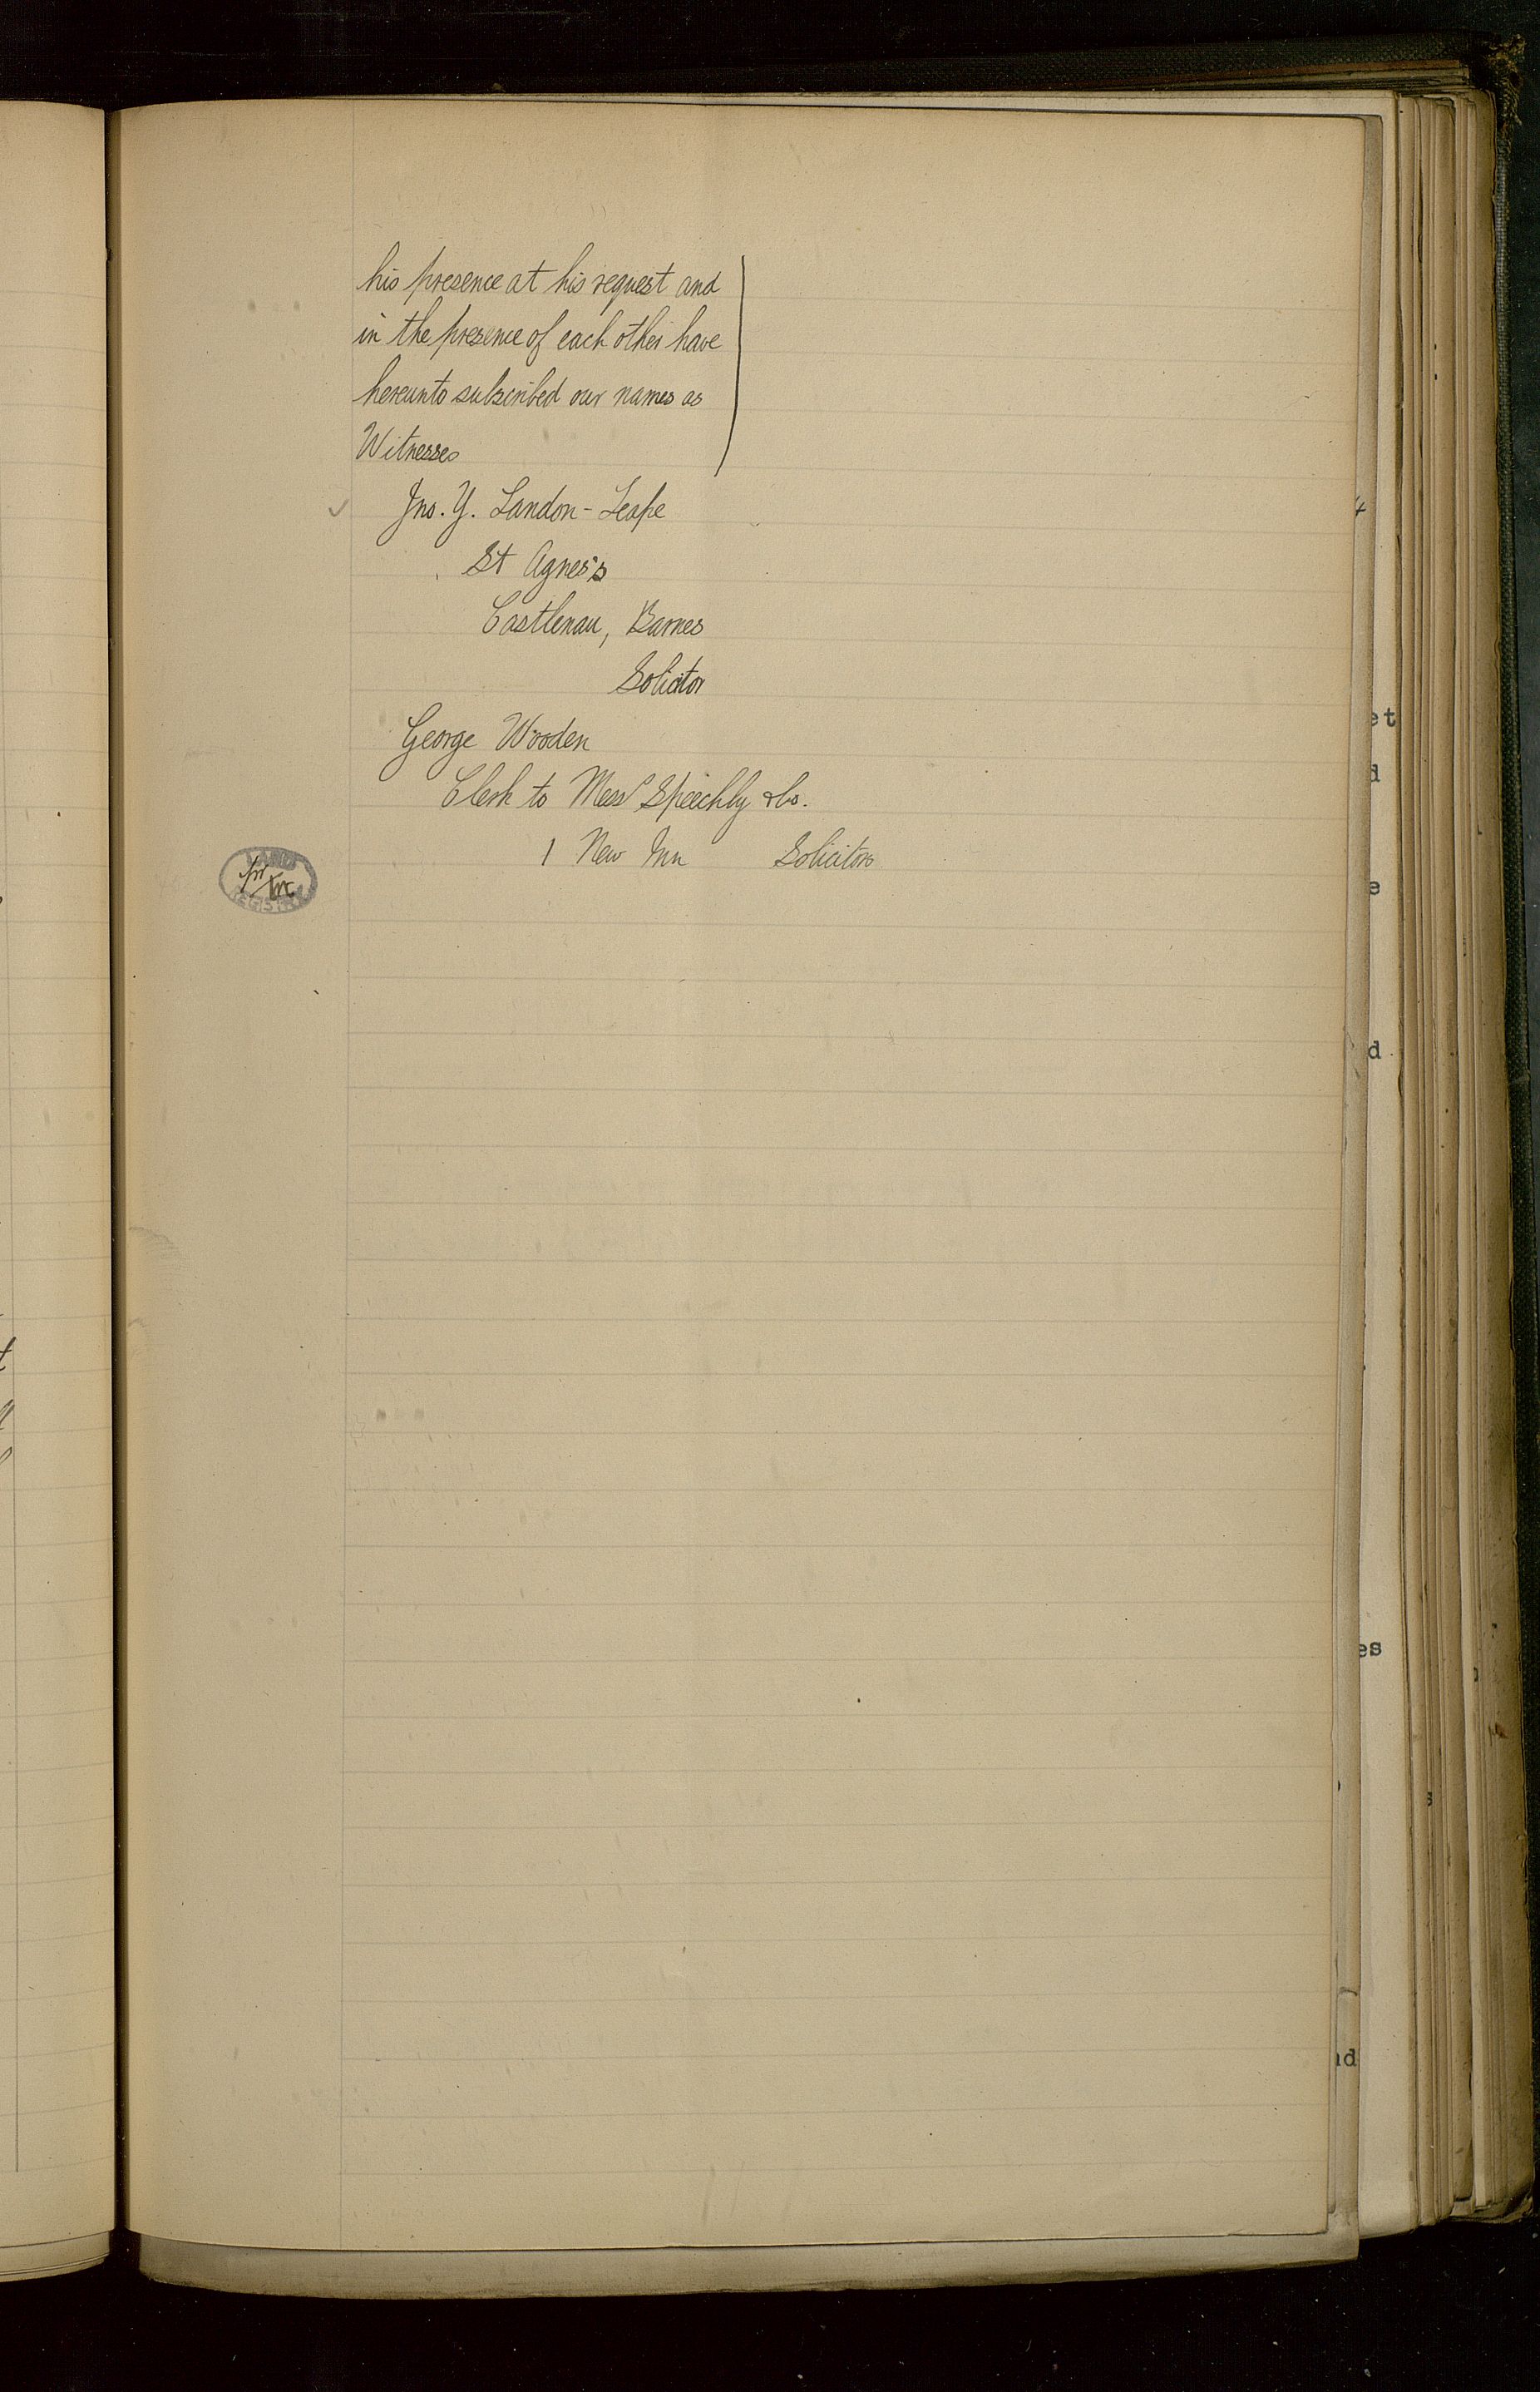 his presence at his request and
in the presence of each other have
hereunto subscribed our names as
Witnesses
Jno. Y. Landon-Leape
St Agnes's
Castlenau, Barnes
Solicitor
George Wooden
Clerk to Messrs Speechly & Co.
1 New Inn Solicitors
LAND
REGISTRY
et
d
e
d
es
s
nd